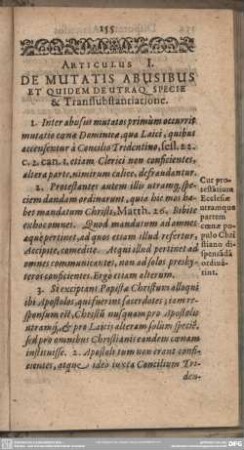 155
ARTICULUS I.
DE MUTATIS ABUSIBUS
ET QUIDEM DE UTRAQ; SPECIE
& Transsubstantiatione.
1. Inter abusus mutatos primùm occurrit
mutatio cœnæ Dominicæ, quâ Laici, quibus
accensentur à Concilio Tridentino, sess. 22.
c. 2. can. 1. etiam Clerici non conficientes,
altera parte, nimirum calice, defraudantur.
2. Protestantes autem illo utramq; speciem
dandam ordinarunt, quia hîc mos habet
mandatum Christi, Matth. 26. Bibite
ex hoc omnes. Quod mandatum ad omnes
æquè pertinet, ad quos etiam illud refertur,
Accipite, comedite. Atqui illud pertinet ad
omnes communicantes, non ad solos presbyteros
conficientes. Ergo etiam alterum.
3. Si excipiant Papistæ Christum alloqui
ibi Apostolos, qui fuerint sacerdotes; jam responsum
est, Christũ nusquam pro Apostolis
utramq; & pro Laicis alteram solùm specië,
sed pro omnibus Christianis eandem cœnam
instituisse. 2. Apostoli tum non erant conficientes,
atque ideo juxta Concilium Tri-
den-
Cur protestantium
Ecclesiæ
utramque
partem
cœnæ populo
Christiano
dispensandã
ordinârint.